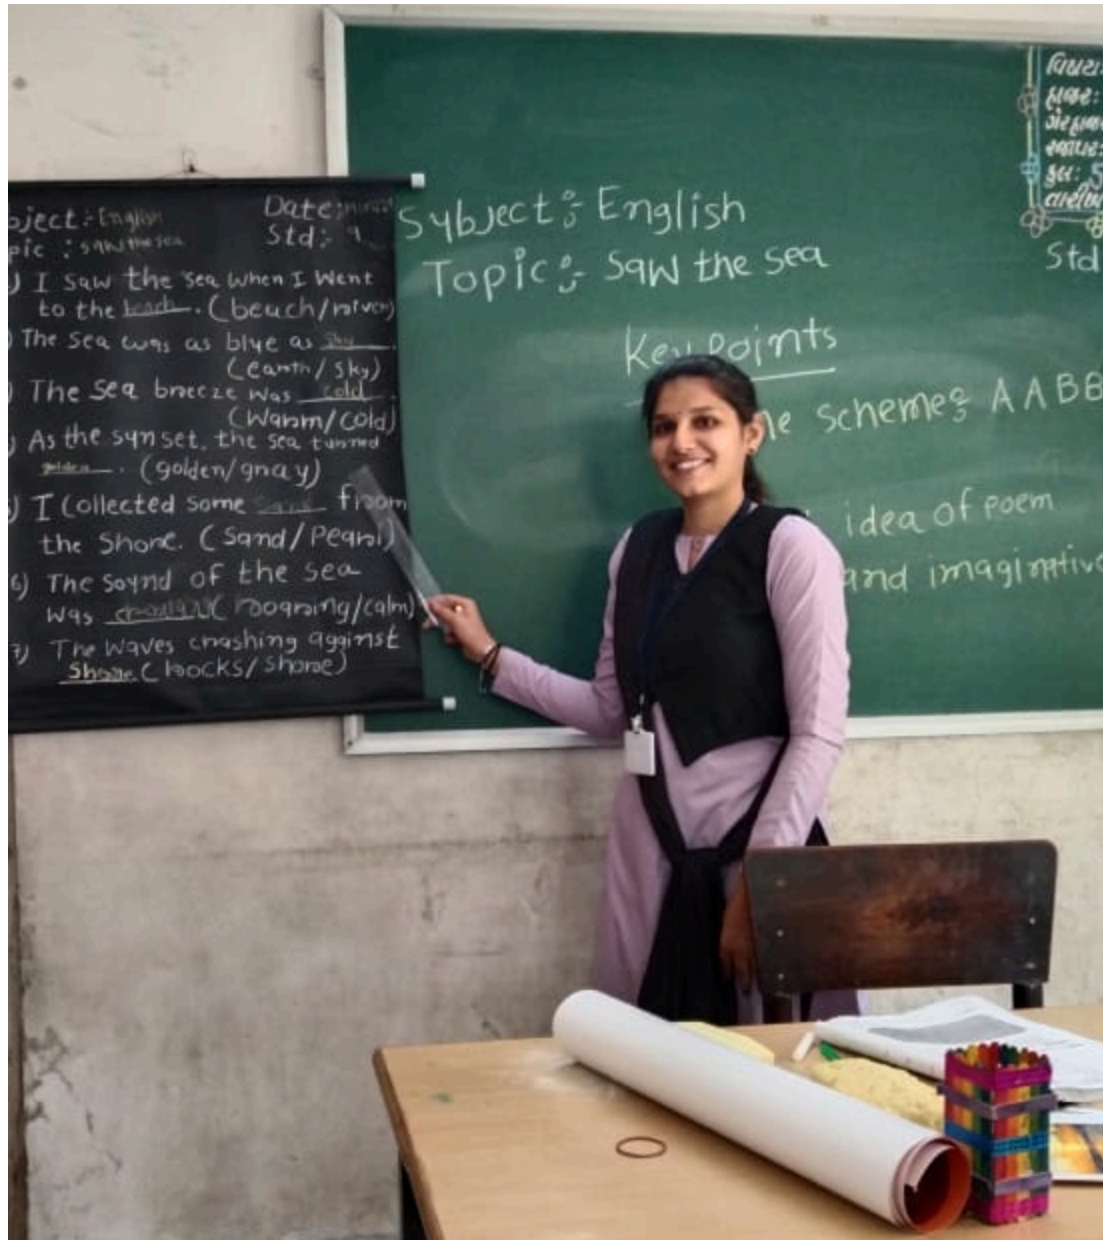 bject:- English
Date:
pic : saw the sea
Std:- 9
) I saw the sea when I went
to the beach. (beach/river)
) The sea was as blue as sky.
(earth/sky)
) The sea breeze was cold
(warm/cold)
) As the sunset, the sea turned
golden. (golden/gray)
) I collected some sand from
the shore. (sand/Pearl)
6) The sound of the sea
was (roaring/calm)
7) The waves crashing against
Shore. (rocks/shore)
Subject:- English
Topic:- Saw the sea
Key Points
me scheme: AABB
idea of poem
and imaginative
વિષય:
હાજર:
ગેરહાજર
કુલ: 5
તારીખ
Std